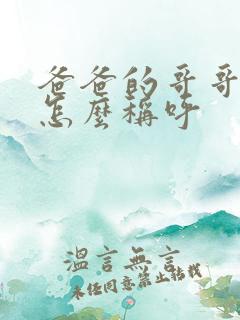 爸爸的哥哥
怎麼稱呼
溫言無言
未经同意禁止转载